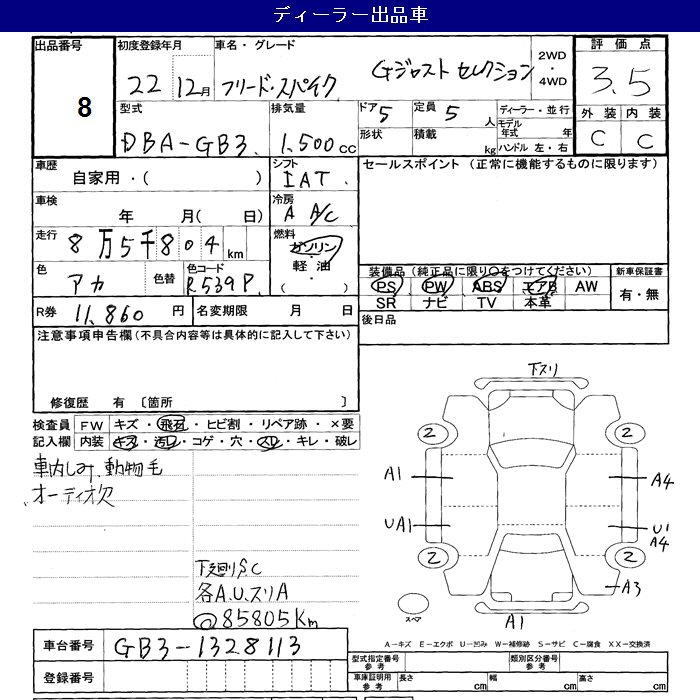 ディーラー出品車
出品番号 8
初度登録年月 22 12月
車名・グレード フリード・スパイク Gジャスト セレクション
2WD・4WD
評価点 3.5
外装 内装
C C
型式 DBA-GB3
排気量 1.500cc
ドア 5 定員 5 人
形状 積載 kg
ディーラー・並行
モデル年式 年
ハンドル 左・右
車歴 自家用・( )
シフト IAT
セールスポイント(正常に機能するものに限ります)
車検 年 月( 日)
冷房 A A/C
走行 8万5千804km
燃料 ガソリン・軽油・
色 アカ 色替 色コード R539P
装備品(純正品に限り○をつけてください) 新車保証書
PS PW ABS エアB AW 有・無
SR ナビ TV 本革
R券 11,860円 名変期限 月 日
後日品
注意事項申告欄(不具合内容等は具体的に記入して下さい)
修復歴 有 〔箇所 〕
検査員記入欄
FW キズ・飛石・ヒビ割・リペア跡・×要
内装 キズ・汚レ・コゲ・穴・スレ・キレ・破レ
車内しみ、動物毛
オーディオ欠
下廻りS.C
各A.U.スリA
@85805Km
下スリ
2 2
A1 A4
UA1 U1 A4
2 2
A3
スペア A1
車台番号 GB3-1328113
登録番号
A-キズ E-エクボ U-凹み W-補修跡 S-サビ C-腐食 XX-交換済
型式指定番号参考 類別区分番号参考
車庫証明用参考 長さ cm 幅 cm 高さ cm